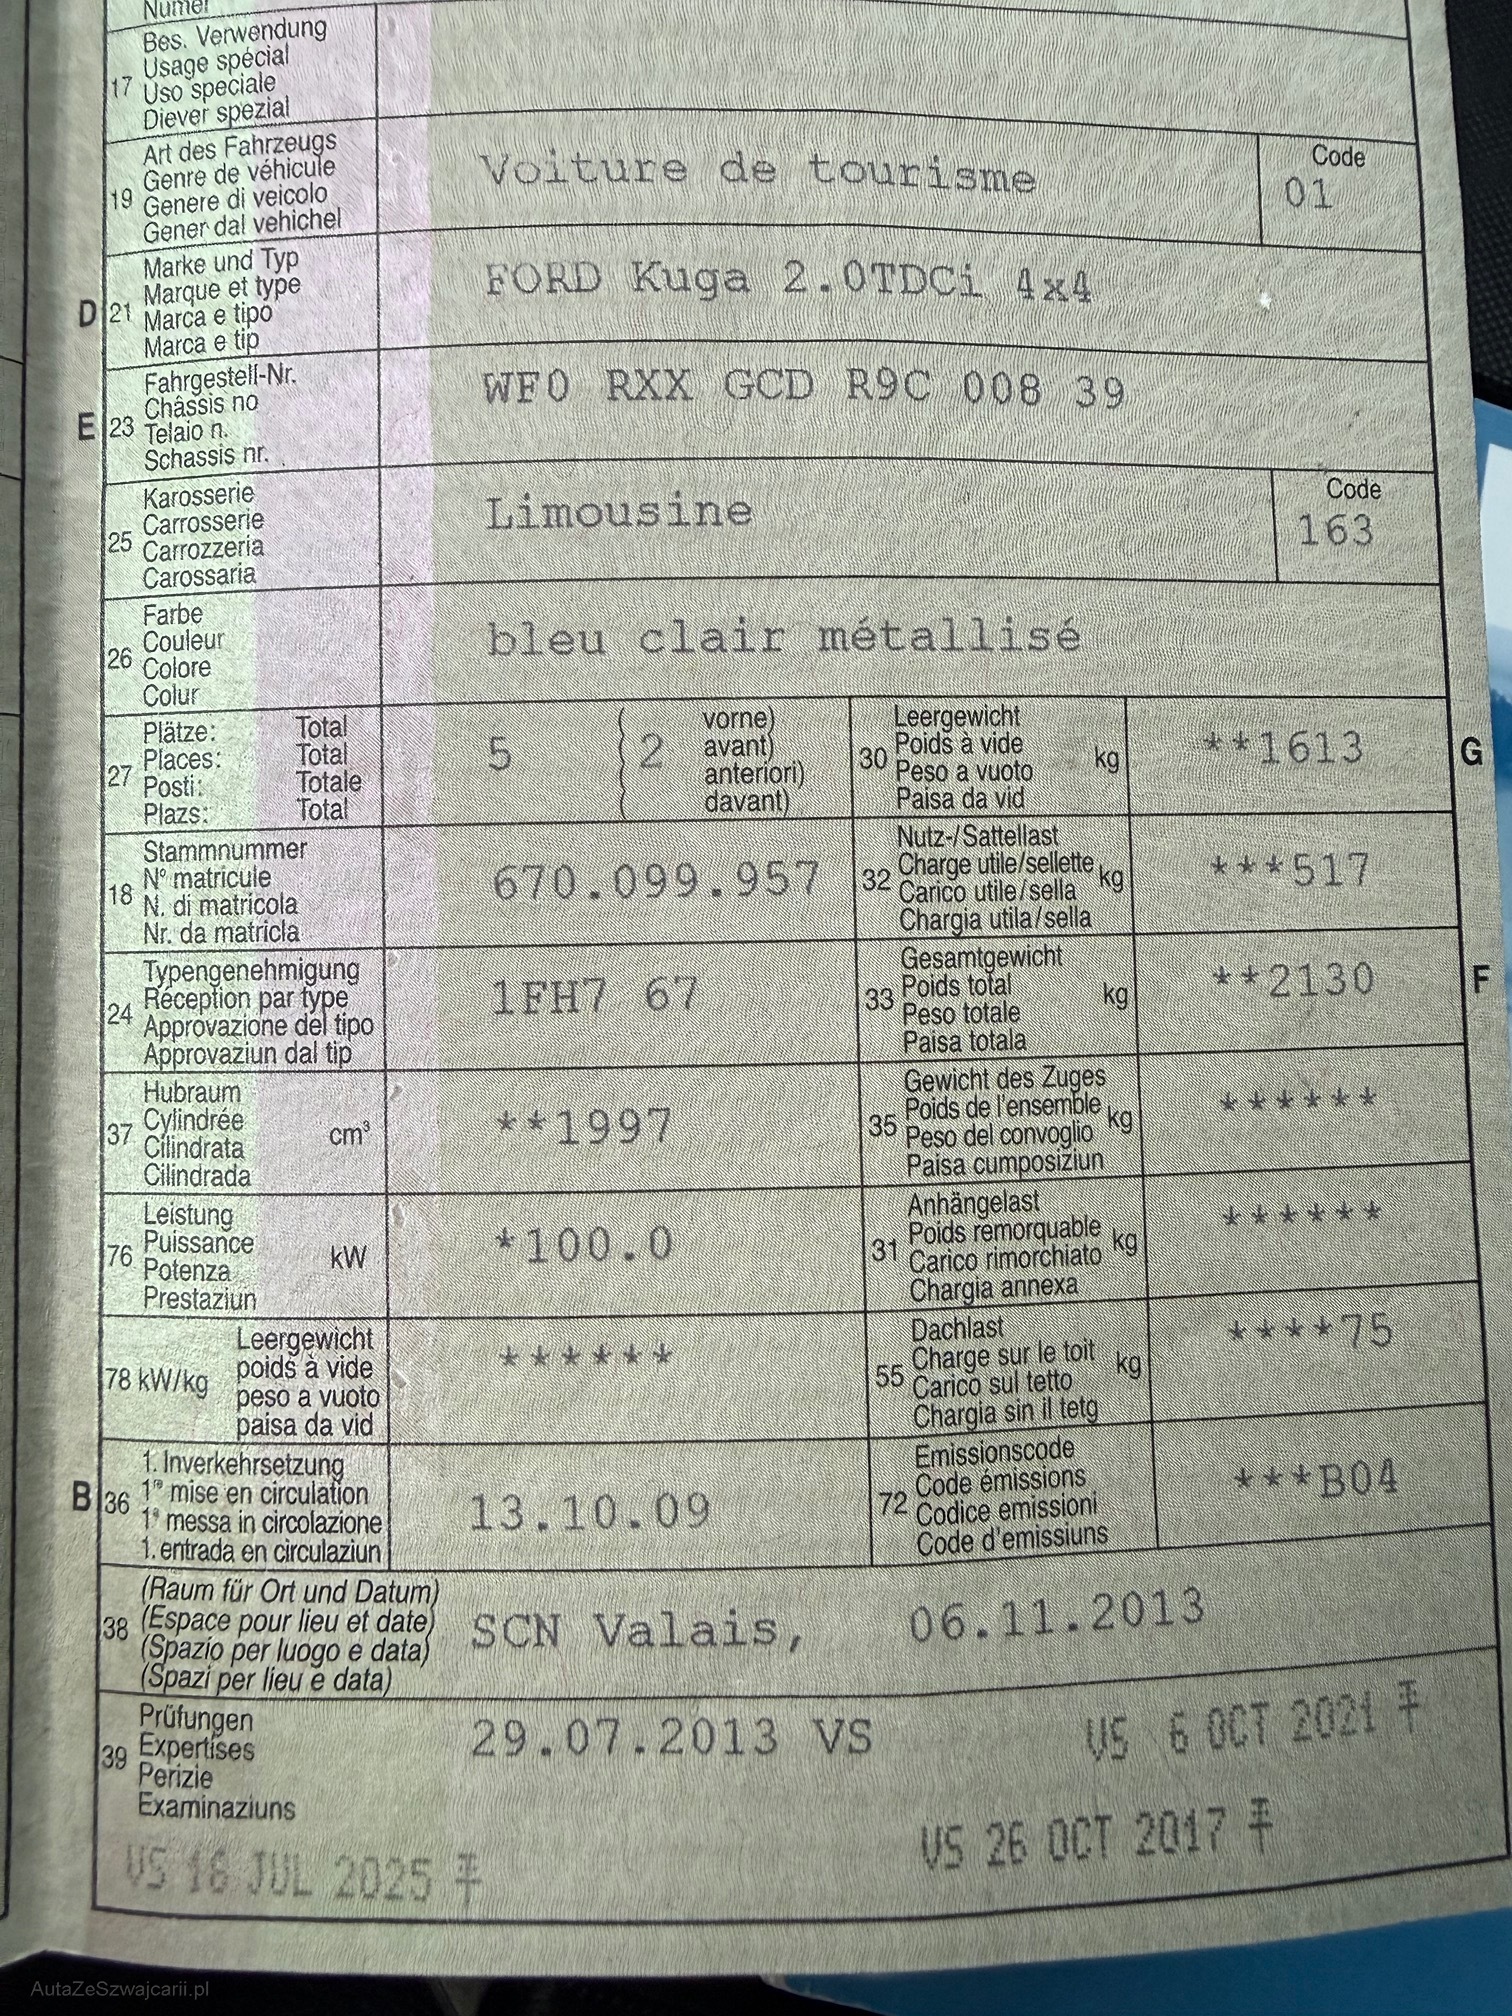 Numer
17 Bes. Verwendung
Usage spécial
Uso speciale
Diever spezial
19 Art des Fahrzeugs
Genre de véhicule
Genere di veicolo
Gener dal vehichel
Voiture de tourisme
Code
01
D 21 Marke und Typ
Marque et type
Marca e tipo
Marca e tip
FORD Kuga 2.0TDCi 4x4
E 23 Fahrgestell-Nr.
Châssis no
Telaio n.
Schassis nr.
WF0 RXX GCD R9C 008 39
25 Karosserie
Carrosserie
Carrozzeria
Carossaria
Limousine
Code
163
26 Farbe
Couleur
Colore
Colur
bleu clair métallisé
27 Plätze: Total
Places: Total
Posti: Totale
Plazs: Total
5 ( 2 vorne)
avant)
anteriori)
davant)
30 Leergewicht
Poids à vide kg
Peso a vuoto
Paisa da vid
**1613
G
18 Stammnummer
N° matricule
N. di matricola
Nr. da matricla
670.099.957
32 Nutz-/Sattellast
Charge utile/sellette kg
Carico utile/sella
Chargia utila/sella
***517
24 Typengenehmigung
Réception par type
Approvazione del tipo
Approvaziun dal tip
1FH7 67
33 Gesamtgewicht
Poids total kg
Peso totale
Paisa totala
**2130
F
37 Hubraum
Cylindrée cm³
Cilindrata
Cilindrada
**1997
35 Gewicht des Zuges
Poids de l'ensemble kg
Peso del convoglio
Paisa cumposiziun
******
76 Leistung
Puissance kW
Potenza
Prestaziun
*100.0
31 Anhängelast
Poids remorquable kg
Carico rimorchiato
Chargia annexa
******
78 kW/kg Leergewicht
poids à vide
peso a vuoto
paisa da vid
******
55 Dachlast
Charge sur le toit kg
Carico sul tetto
Chargia sin il tetg
****75
B 36 1. Inverkehrsetzung
1re mise en circulation
1a messa in circolazione
1. entrada en circulaziun
13.10.09
72 Emissionscode
Code émissions
Codice emissioni
Code d'emissiuns
***B04
38 (Raum für Ort und Datum)
(Espace pour lieu et date)
(Spazio per luogo e data)
(Spazi per lieu e data)
SCN Valais, 06.11.2013
39 Prüfungen
Expertises
Perizie
Examinaziuns
29.07.2013 VS
VS 6 OCT 2021
VS 26 OCT 2017
VS 16 JUL 2025
AutaZeSzwajcarii.pl